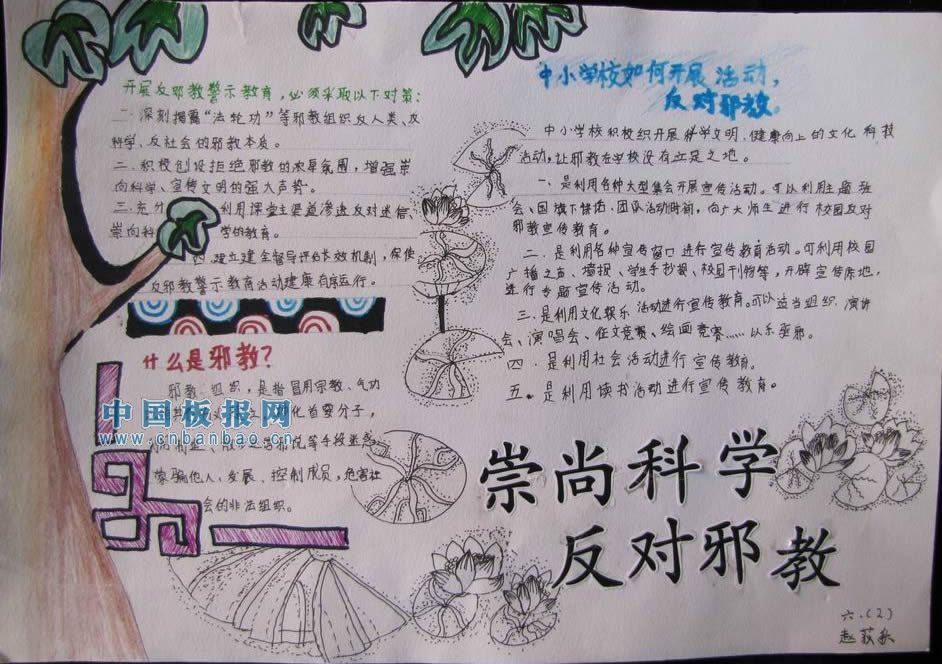 开展反邪教警示教育，必须采取以下对策：
一.深刻揭露“法轮功”等邪教组织反人类、反
科学、反社会的邪教本质。
二.积极创设拒绝邪教的浓厚氛围，增强崇
向科学、宣传文明的强大声势。
三.充分 利用课堂主渠道渗透反对迷信
崇向科 学的教育。
四.建立健全督导评估长效机制，保使
反邪教警示教育活动健康有序运行。
什么是邪教？
邪教 组织，是指冒用宗教、气功
化首要分子，
等手段迷惑
蒙骗他人，发展、控制成员，危害社
会的非法组织。
中国板报网
www.cnbanbao.cn
中小学校如何开展活动，
反对邪教。
中小学校积极组织开展科学文明、健康向上的文化科技
活动，让邪教在学校没有立足之地。
一.是利用各种大型集会开展宣传活动。可以利用主题班
会、国旗下讲话、团队活动时间，向广大师生进行校园反对
邪教宣传教育。
二.是利用各种宣传窗口进行宣传教育活动。可利用校园
广播之声、墙报、学生手抄报、校园刊物等，开辟宣传阵地，
进行专题宣传活动。
三.是利用文化娱乐活动进行宣传教育。可以适当组织 演讲
会、演唱会、征文竞赛、绘画竞赛……以乐驱邪。
四.是利用社会活动进行宣传教育。
五.是利用读书活动进行宣传教育。
崇尚科学
反对邪教
六.(2)
赵